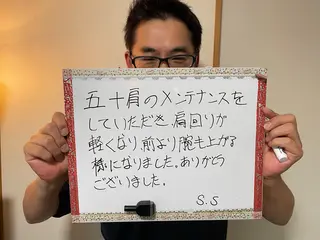 五十肩のメンテナンスを
していただき、肩回りが
軽くなり、前より腕も上がる
様になりました。ありがとう
ございました。
S.S